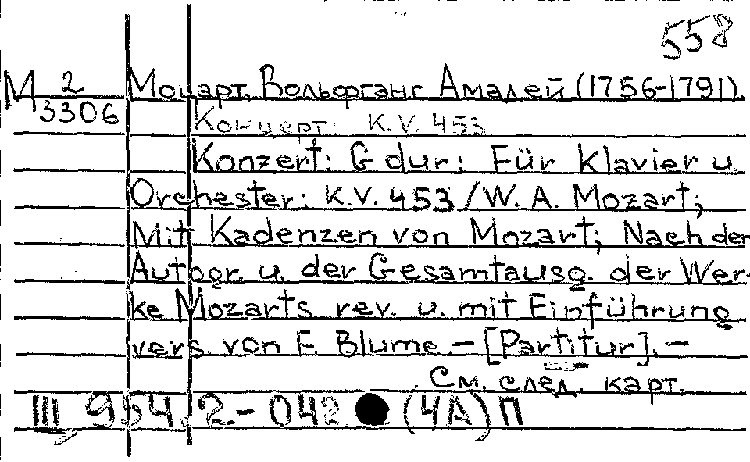 558
М 2 Моцарт, Вольфганг Амадей (1756-1791).
3306 Концерт: K.V. 453
Konzert: G dur: Für Klavier u.
Orchester: K.V. 453/W. A. Mozart;
Mit Kadenzen von Mozart; Nach der
Autogr. u. der Gesamtausg. der Wer-
ke Mozarts rev. u. mit Einführung
vers. von F. Blume.-[Partitur].-
См. след. карт.
III 954/2.-042 (4А) П